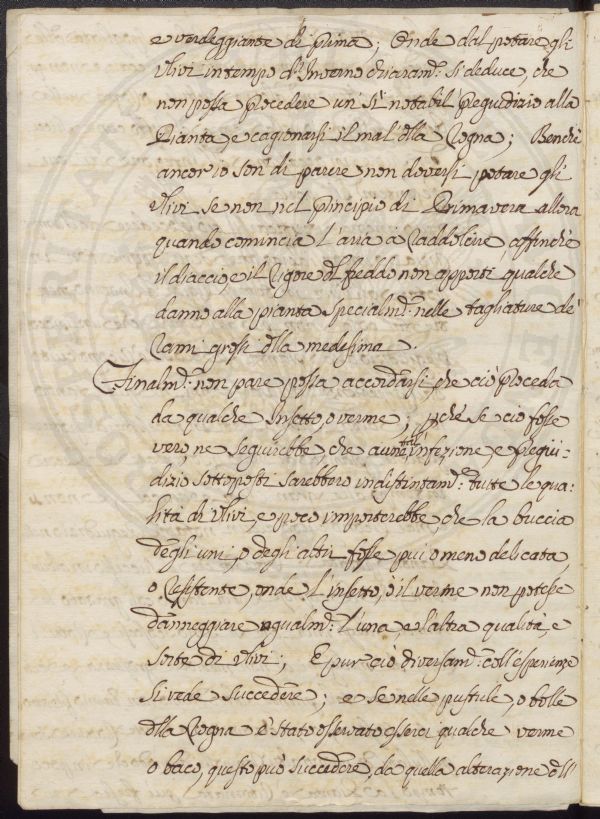 e verdeggiante di prima; Onde dal potare gli
Ulivi in tempo d'Inverno chiaram.e si deduce, che
non possa procedere un sì notabil pregiudizio alla
Pianta, e cagionarsi il mal d.lla Rogna; Benchè
ancor io son di parere non doversi potare gli
Ulivi se non nel principio di Primavera allora
quando comincia l'aria à raddolcire, affinchè
il diaccio, e il rigore d.l freddo non apporti qualche
danno alla pianta specialm.e nelle tagliature de'
rami grossi d.lla medesima.
Finalm.e non pare possa accordarsi, che ciò proceda
da qualche Insetto, o verme; p.chè se ciò fosse
vero, ne seguirebbe, che a una tal infezione e pregiu-
dizio sottoposti sarebbero indistintam.e tutte le qua-
lità di Ulivi, e poco importerebbe, che la buccia
degli uni, o degli altri fosse più o meno delicata,
o resistente, onde l'insetto, ò il verme non potesse
danneggiare ugualm.e l'una, e l'altra qualità, e
sorte di Ulivi; E pur ciò diversam.e coll'esperienze
si vede succedere; e se nelle pustule, o bolle
d.lla Rogna è stato osservato esserci qualche verme
o baco, questo può succedere, da quella alterazione d.ll'